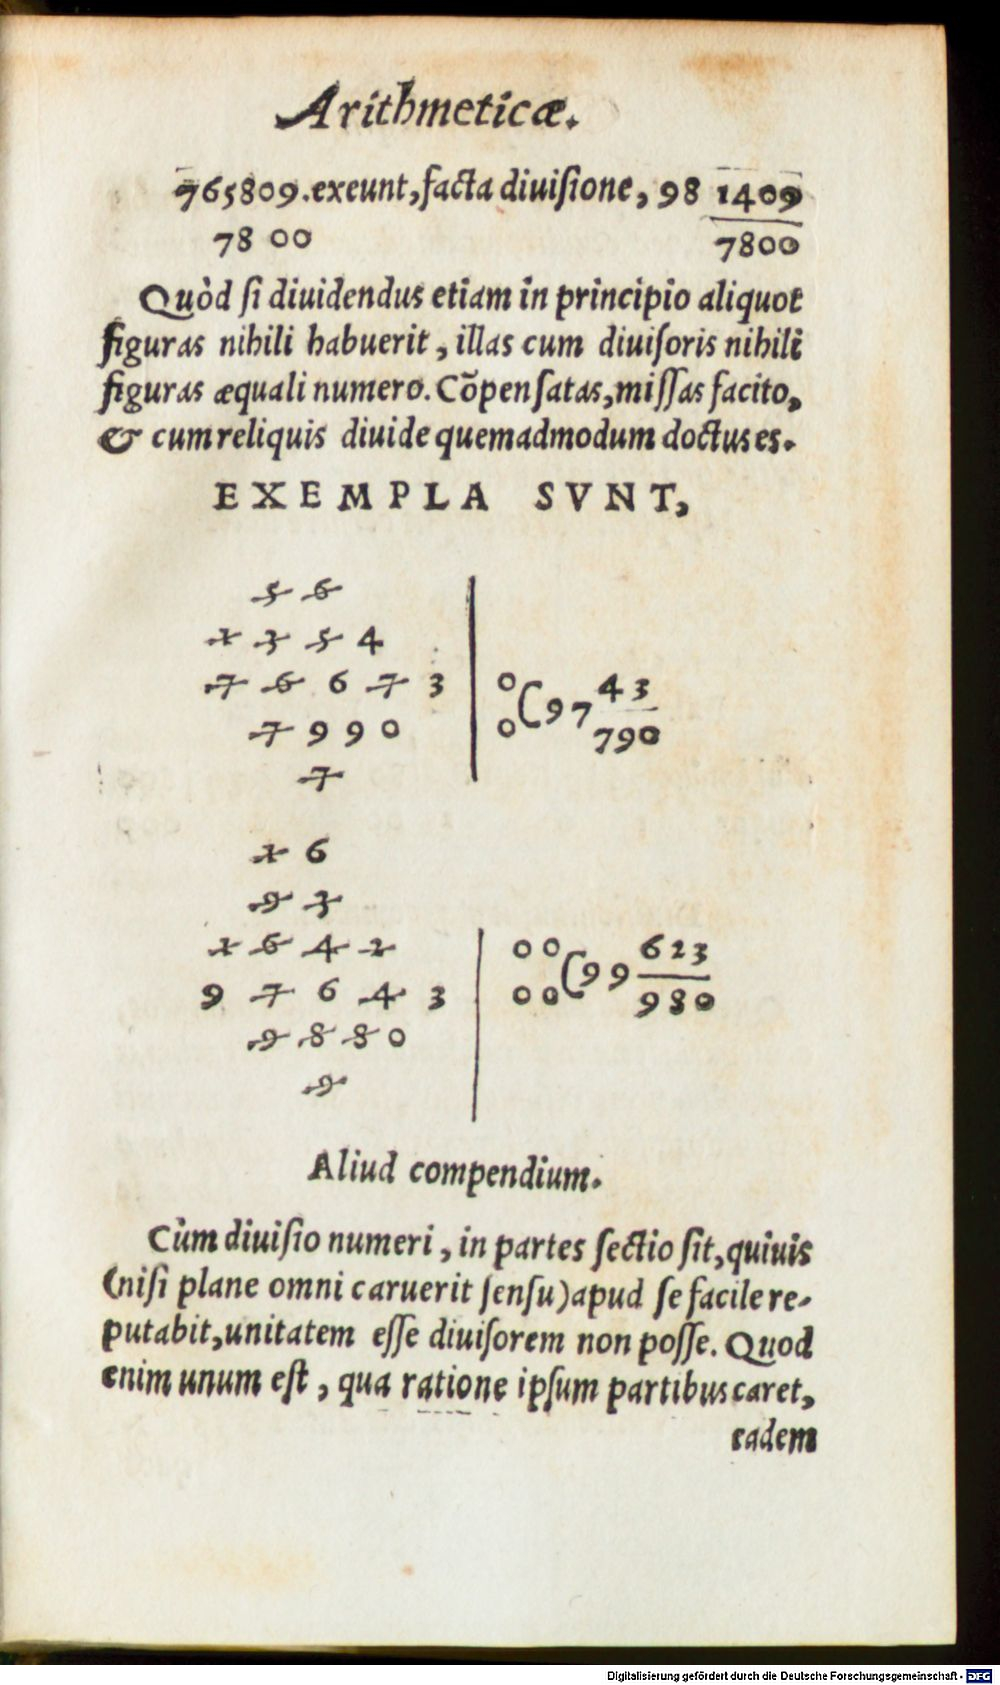 Arithmeticæ.
765809.exeunt,facta diuiſione, 98 1409
78 00 7800
Quòd ſi diuidendus etiam in principio aliquot
figuras nihili habuerit, illas cum diuiſoris nihili
figuras æquali numero. Cõpenſatas,miſſas facito,
& cum reliquis diuide quemadmodum doctus es.
EXEMPLA SVNT,
5 6
1 3 5 4
7 6 6 7 3 | 0 ( 97 43
7 9 9 0 | 0 790
7
1 6
9 3
1 6 4 2 | 0 0 623
9 7 6 4 3 | 0 0 ( 99 980
9 8 8 0
9
Aliud compendium.
Cùm diuiſio numeri, in partes ſectio ſit,quiuis
(niſi plane omni caruerit ſenſu)apud ſe facile re-
putabit,unitatem eſſe diuiſorem non poſſe. Quod
enim unum eſt, qua ratione ipſum partibus caret,
eadem
Digitalisierung gefördert durch die Deutsche Forschungsgemeinschaft - DFG